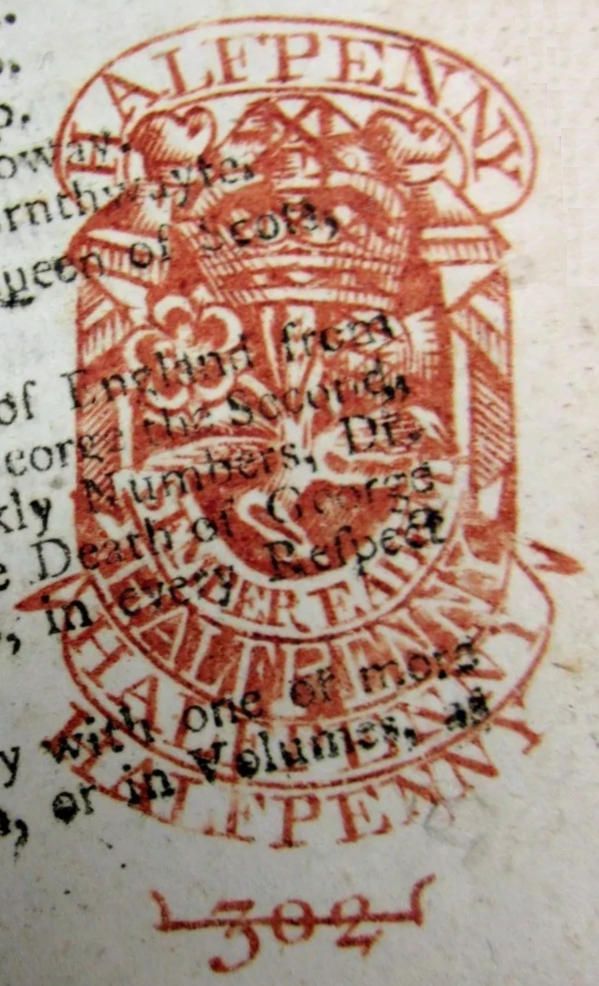 HALFPENNY
Queen of Scots,
of England from
George the Second,
Numbers, Dr.
Death of George
in every Reſpect
HALFPENNY
HALFPENNY
with one or more
or in Volumes, as
HALFPENNY
302